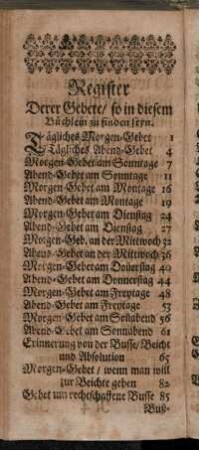 Register
Derer Gebete/ so in diesem
Büchlein zu finden seyn.
Tägliches Morgen-Gebet 1
Tägliches Abend-Gebet 4
Morgen-Gebet am Sonntage 7
Abend-Gebet am Sonntage 11
Morgen-Gebet am Montage 16
Abend-Gebet am Montage 19
Morgen-Gebet am Dienstag 24
Abend-Gebet am Dienstag 27
Morgen-Geb. an der Mittwoch 32
Abend-Gebet an der Mittwoch 36
Morgen-Gebet am Donerstag 40
Abend-Gebet am Donnerstag 44
Morgen-Gebet am Freytage 48
Abend-Gebet am Freytage 53
Morgen-Gebet am Soñabend 56
Abend-Gebet am Sonnabend 61
Erinnerung von der Busse/ Beicht
und Absolution 65
Morgen-Gebet / wenn man will
zur Beichte gehen 82
Gebet um rechtschaffene Busse 85
Buß-